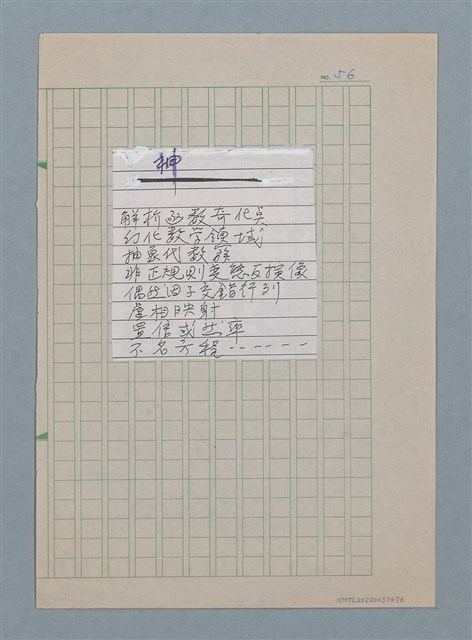 NO. 56
神
解析函数奇化吳
幻化数学領域
抽象代数簇
非正規則变態反損像
偶然因子交錯行列
虛相映射
置信或然率
不名方程------
NMTL20220051476